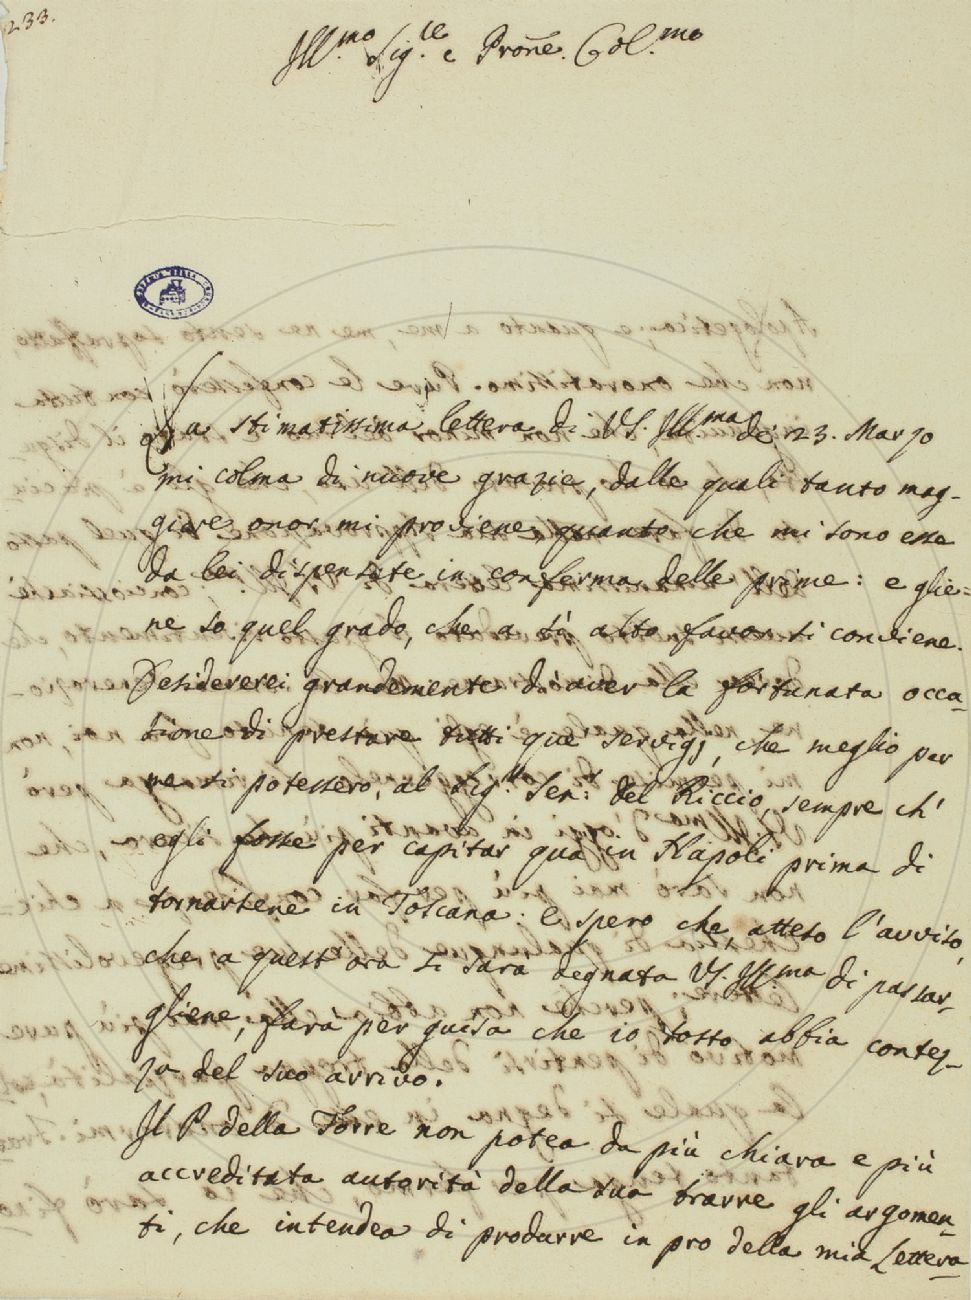 233.
Ill.mo Sig.re e Pro͂ne. Col.mo
La stimatissima lettera di VS. Ill.ma de' 23. Marzo
mi colma di nuove grazie, dalle quali tanto mag-
giore onor mi proviene, quanto che mi sono esse
da lei dispensate in conferma delle prime: e glie=
ne so quel grado, che a sì alto favor si conviene.
Desidererei grandemente d'aver la fortunata occa-
sione di prestare tutti que' servigj, che meglio per
me si potessero, al Sig.r Sen.r del Riccio, sempre ch'
egli fosse per capitar qua in Napoli prima di
tornarsene in Toscana: e spero che atteso l'avviso,
che a quest'ora si sarà degnata VS. Ill.ma di passar-
gliene, farà per guisa che io tosto abbia contez-
za del suo arrivo.
Il P. della Torre non potea da più chiara e più
accreditata autorità della sua trarre gli argomen-
ti, che intendea di produrre in pro della mia Lettera